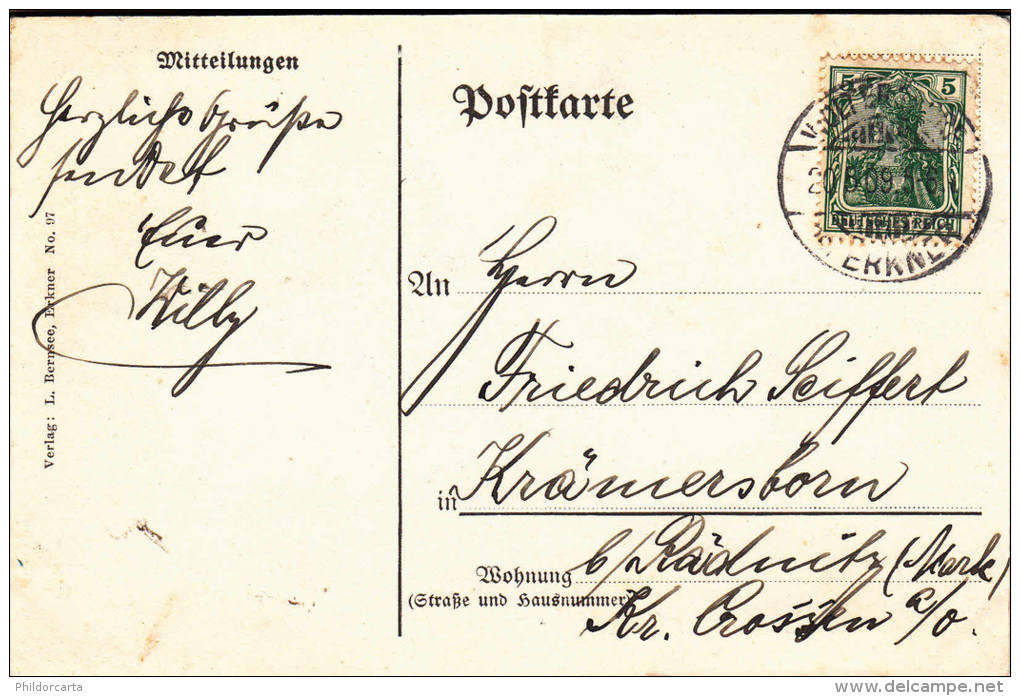 Mitteilungen
Herzliche Grüße
sendet
Euer
Willy
Verlag: L. Bernsee, Erkner No. 97
Postkarte
5 5
DEUTSCHES REICH
9.09
ERKNER
An Herrn
Friedrich Seiffert
in Krämersborn
Wohnung b/Rädnitz (Mark)
(Straße und Hausnummer) Kr. Crossen a/o.
Phildorcarta
www.delcampe.net